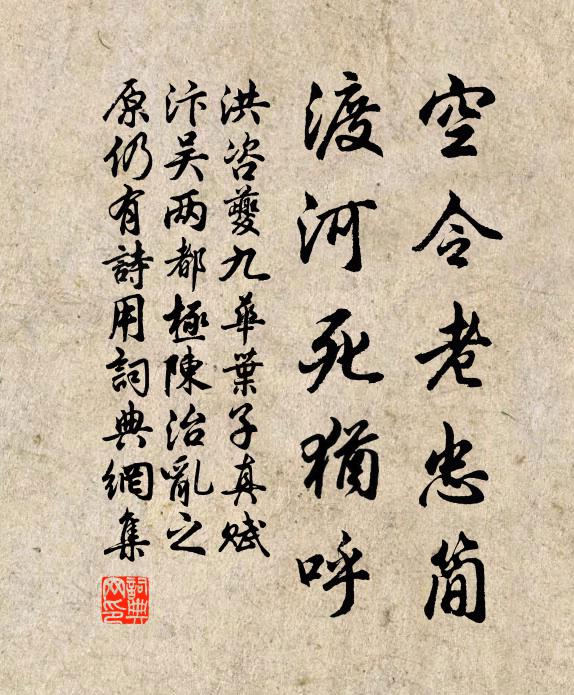 空令老忠简
渡河死猶呼
洪咨夔九華葉子真賦
汴吴两都極陳治亂之
原仍有詩用詞典網集
詞典
网印